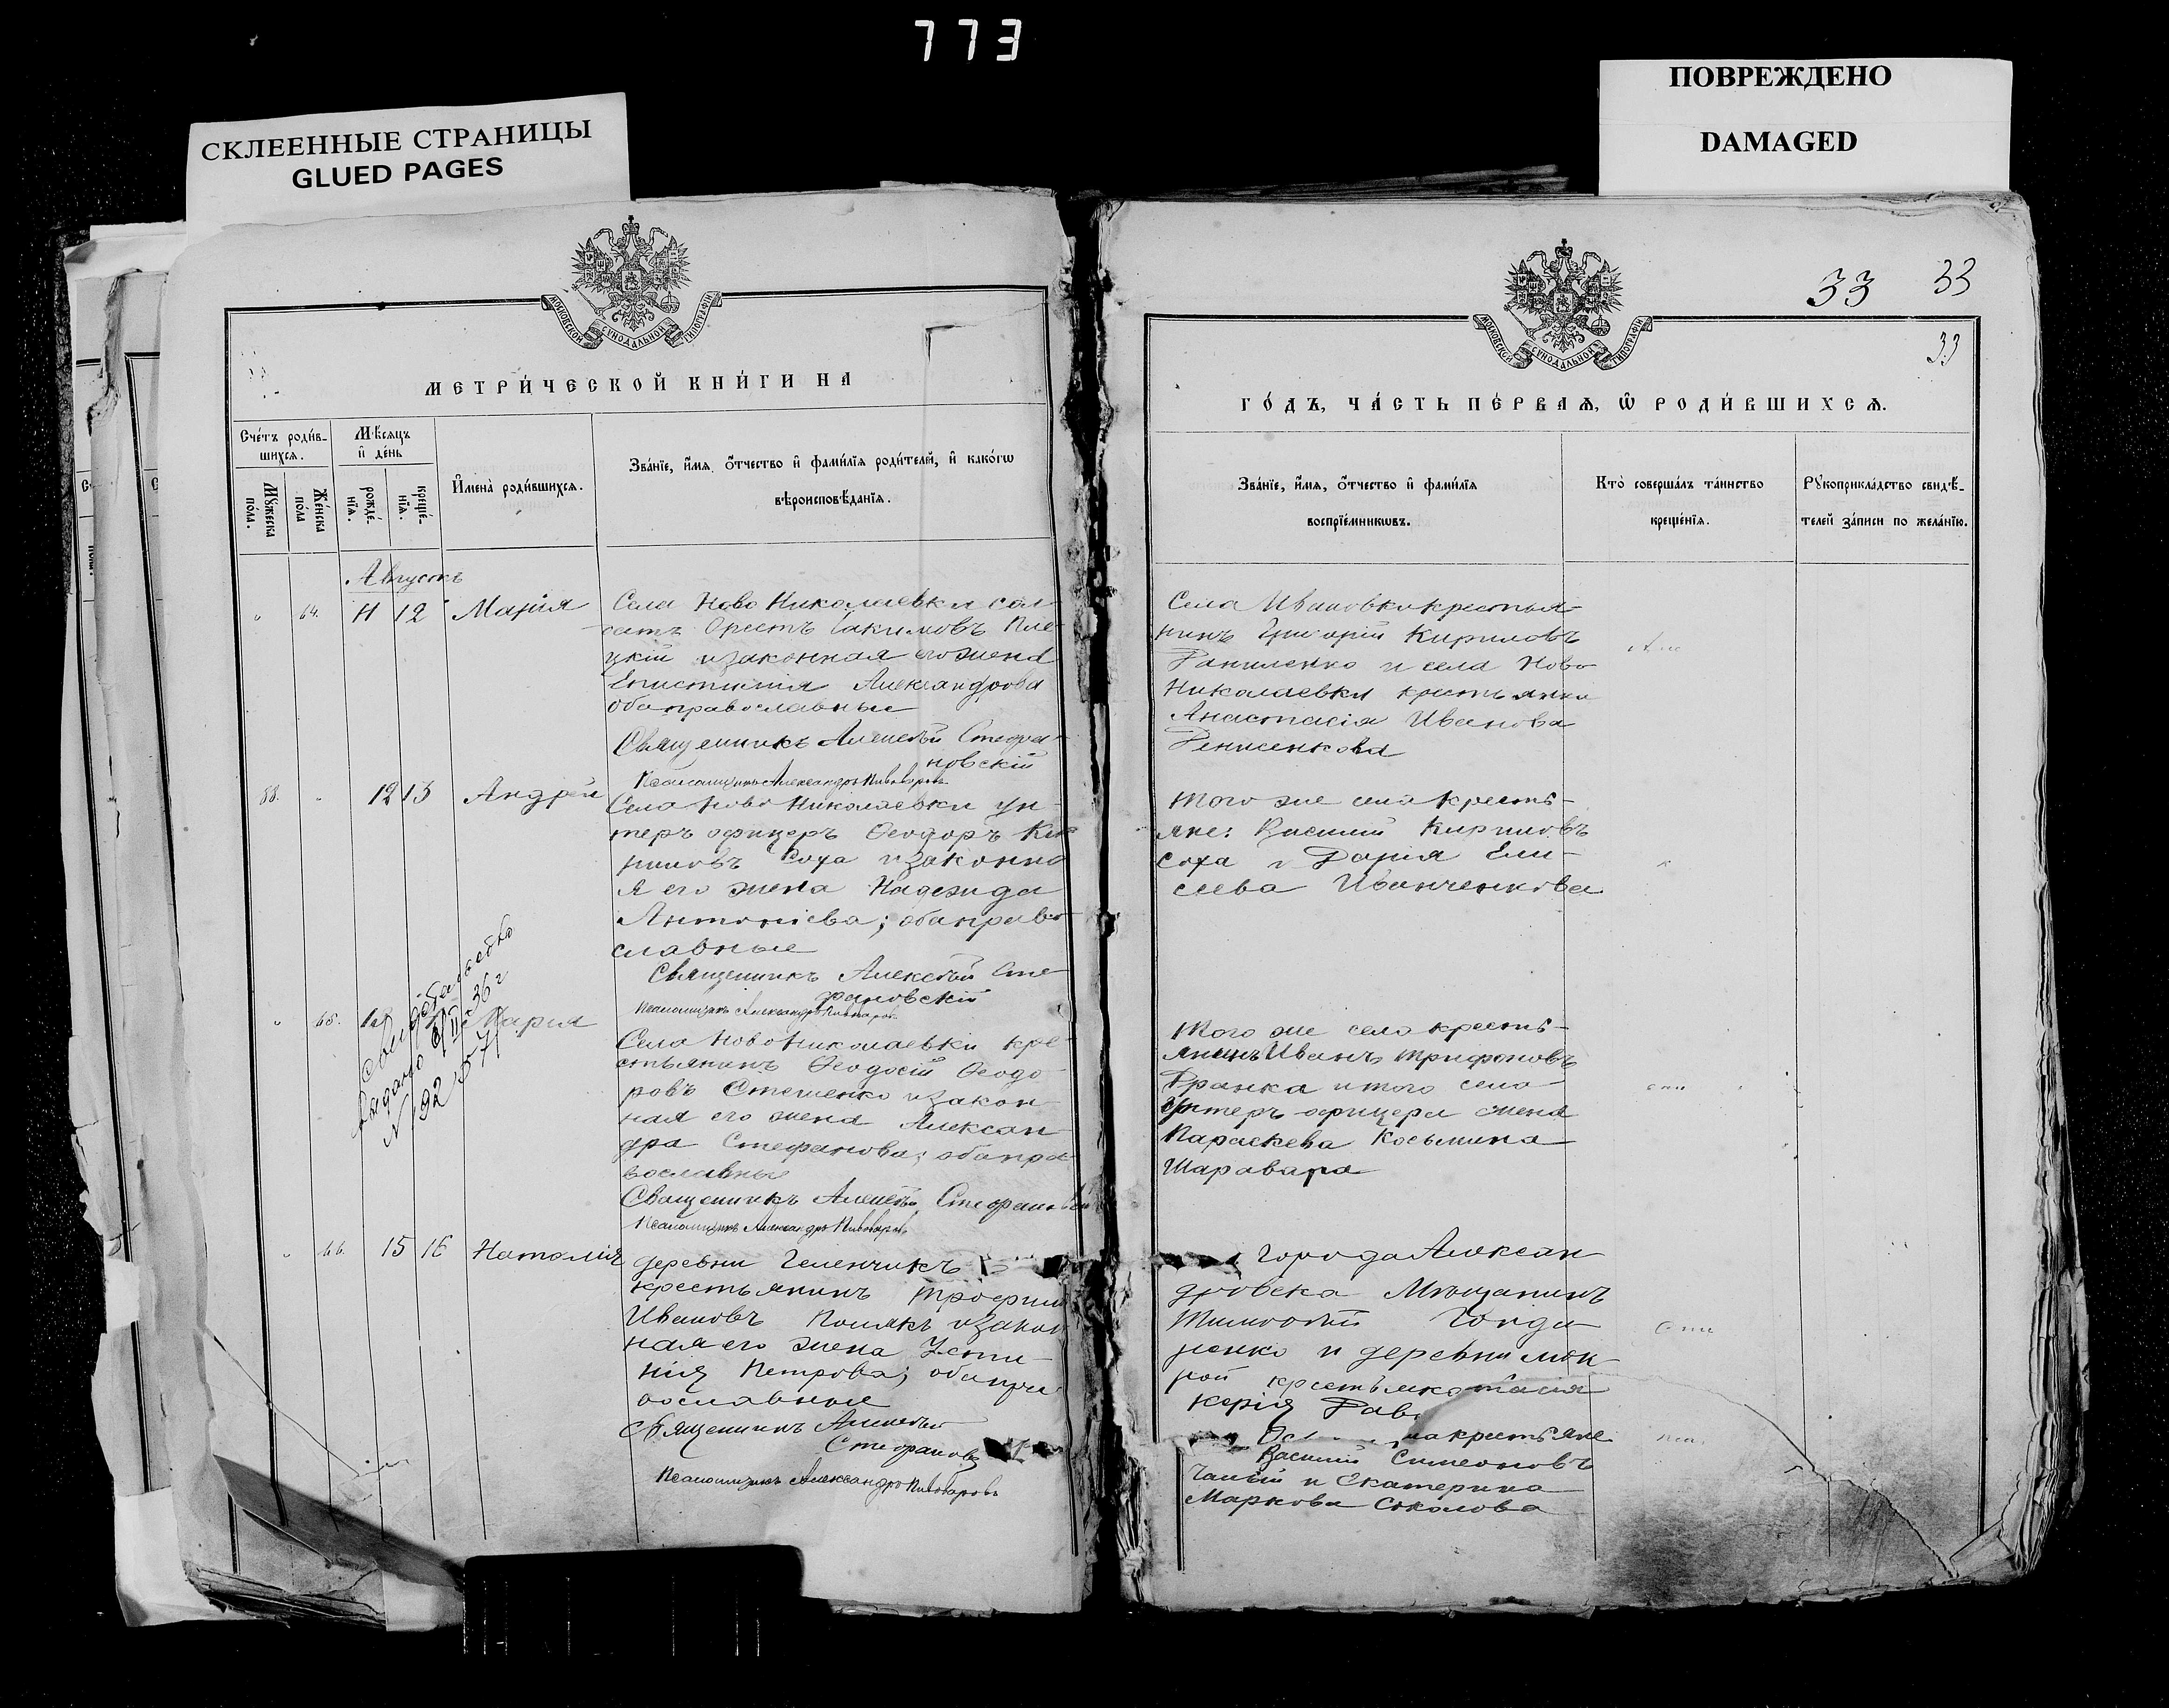 773
СКЛЕЕННЫЕ СТРАНИЦЫ
GLUED PAGES
ПОВРЕЖДЕНО
DAMAGED
МОСКОВСКОЙ СѴНОДАЛЬНОЙ ТИПОГРАФІИ
МЕТРИ́ЧЕСКОЙ КНИ́ГИ НА
Сче́тъ роди́в-
шихсѧ.
Мѣ́сѧцъ
и҆ де́нь
Мꙋ́жеска
по́ла.
Же́нска
по́ла
рожде́-
нїѧ.
креще́-
нїѧ.
И҆мена̀ роди́вшихсѧ.
Зва́нїе, и҆́мѧ, ѻ҆́тчество и҆ фами́лїѧ роди́телей, и҆ како́гѡ
вѣроисповѣ́данїѧ.
Августъ
" 64. 11 12 Марія
Села Ново Николаевки сол-
датъ Орестъ Іакимовъ Пле-
цкій и законная его жена
Епистимія Александрова
оба православные
Священникъ Алексѣй Стефа-
новскій
Псаломщикъ Александръ Пивоваровъ
88. " 12 13 Андрей
Села Ново Николаевки ун-
теръ офицеръ Ѳеодоръ Ки-
риловъ Соха и законна
я его жена Надежда
Антоніева; оба право
славные
Священникъ Алексѣй Сте-
фановскій
Псаломщикъ Александръ Пивоваровъ
" 65. Марія
выдано
36 г
N 192571
Села Ново Николаевки кре-
стьянинъ Ѳеодосій Ѳеодо-
ровъ Стешенко и закон-
ная его жена Алексан-
дра Стефанова; оба пра-
вославные
Священникъ Алексѣй Стефановскій
Псаломщикъ Александръ Пивоваровъ
" 66. 15 16 Наталія
деревни Геленчикъ
крестьянинъ Трофим
Ивановъ Полякъ и закон
ная его жена Усти-
нія Петрова; оба пра
вославные
Священникъ Алексѣй
Стефановс
Псаломщикъ Александръ Пивоваровъ
33 33
33
МОСКОВСКОЙ СѴНОДАЛЬНОЙ ТИПОГРАФІИ
ГО́ДЪ, ЧА́СТЬ ПЕ́РВАѦ, Ѡ҆ РОДИ́ВШИХСѦ.
Зва́нїе, и҆́мѧ, ѻ҆́тчество и҆ фами́лїѧ
воспрїе́мникѡвъ.
Кто̀ соверша́лъ та́инство
креще́нїѧ.
Рꙋкоприкла́дство свидѣ́-
телей за́писи по жела́нїю.
Села Ивановки крестья-
нинъ Григорій Кириловъ
Даниленко и села Ново
Николаевки крестьянка
Анастасія Иванова
Денисенкова
Того же села крестья-
яне: Василій Кириловъ
Соха и Дарія Ели-
сеева Иванченкова
Того же села крестья-
янинъ Иванъ Трифоновъ
Дранка и того села
унтеръ-офицера жена
Параскева Косьмина
Шаравара
города Алексан
дровска Мѣщанинъ
Тимоѳей Гонда
ренко и деревни Мок
рой крестьянка
Василій Симеоновъ
и Екатерина
Маркова Соколова